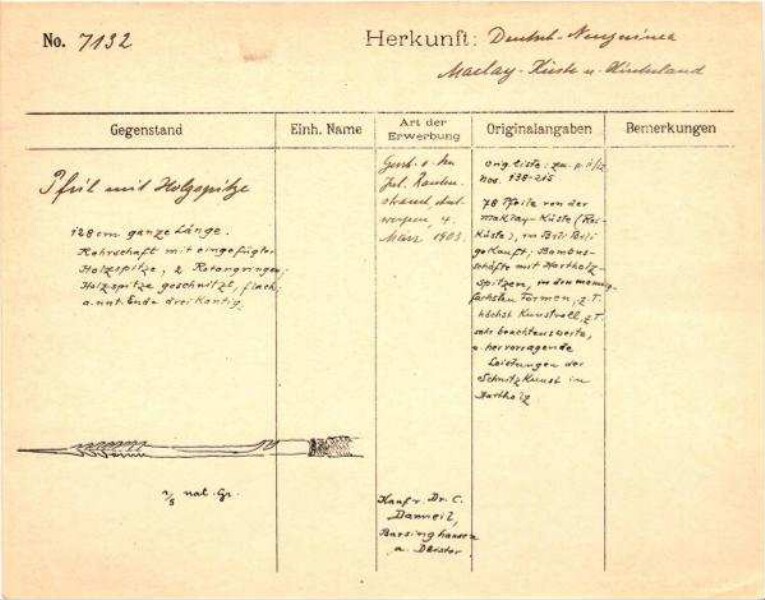 No. 7132
Herkunft: Deutsch-Neuguinea
Maclay-Küste u. Hinterland
Gegenstand
Einh. Name
Art der Erwerbung
Originalangaben
Bemerkungen
Pfeil mit Holzspitze
128 cm ganze Länge.
Rohrschaft mit eingefügter
Holzspitze, 2 Rotangringen;
Holzspitze geschnitzt, flach,
a. unt. Ende dreikantig.
März 1903.
Kauf v. Dr. C.
Damneil,
Barsinghausen
a. Deister
Orig. liste: zu
nos. 138-215
78 Pfeile von der
Maklay-Küste (Rai-
Küste), in Bili Bili
gekauft; Bambus-
schäfte mit Hartholz-
spitzen, in den mannig-
fachsten Formen, z.T.
höchst kunstvoll, z.T.
sehr beachtenswerte,
u. hervorragende
Leistungen der
Schnitzkunst in
Hartholz
nat. Gr.